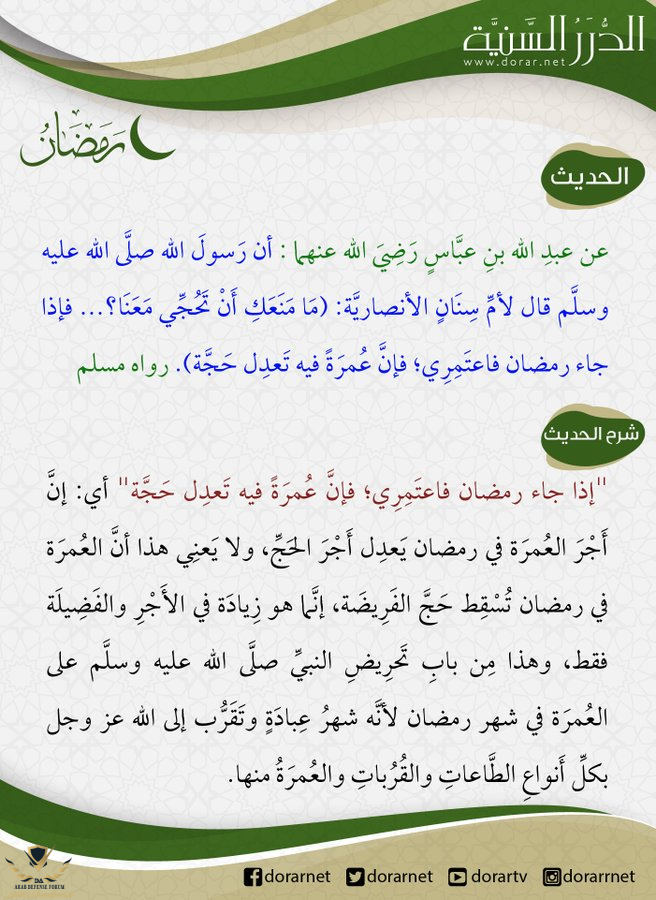 الدُّرَرُ السَّنِيَّة
www.dorar.net
رَمَضَانُ
الحديث
عن عبدِ الله بنِ عبَّاسٍ رَضِيَ الله عنهما : أن رَسولَ الله صلَّى الله عليه
وسلَّم قال لأمِّ سِنَانٍ الأنصاريَّة: (مَا مَنَعَكِ أَنْ تَحُجِّي مَعَنَا؟... فإذا
جاء رمضان فاعتَمِرِي؛ فإنَّ عُمرَةً فيه تَعدِل حَجَّة). رواه مسلم
شرح الحديث
"إذا جاء رمضان فاعتَمِرِي؛ فإنَّ عُمرَةً فيه تَعدِل حَجَّة" أي: إنَّ
أَجْرَ العُمرَة في رمضان يَعدِل أَجْرَ الحَجِّ، ولا يَعنِي هذا أنَّ العُمرَة
في رمضان تُسْقِط حَجَّ الفَرِيضَة، إنَّما هو زِيادَة في الأَجْرِ والفَضِيلَة
فقط، وهذا مِن بابِ تَحرِيضِ النبيِّ صلَّى الله عليه وسلَّم على
العُمرَة في شهر رمضان لأنَّه شهرُ عِبادَةٍ وتَقَرُّب إلى الله عز وجل
بكلِّ أَنواعِ الطَّاعاتِ والقُرُباتِ والعُمرَةُ منها.
DA
ARAB DEFENSE FORUM
dorarnet dorarnet dorartv dorarrnet